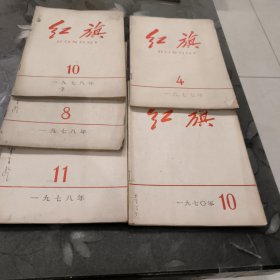 红旗
10
一九七八年
8
一九七八年
11
一九七八年
红旗
4
一九七七年
红旗
一九七〇年 10